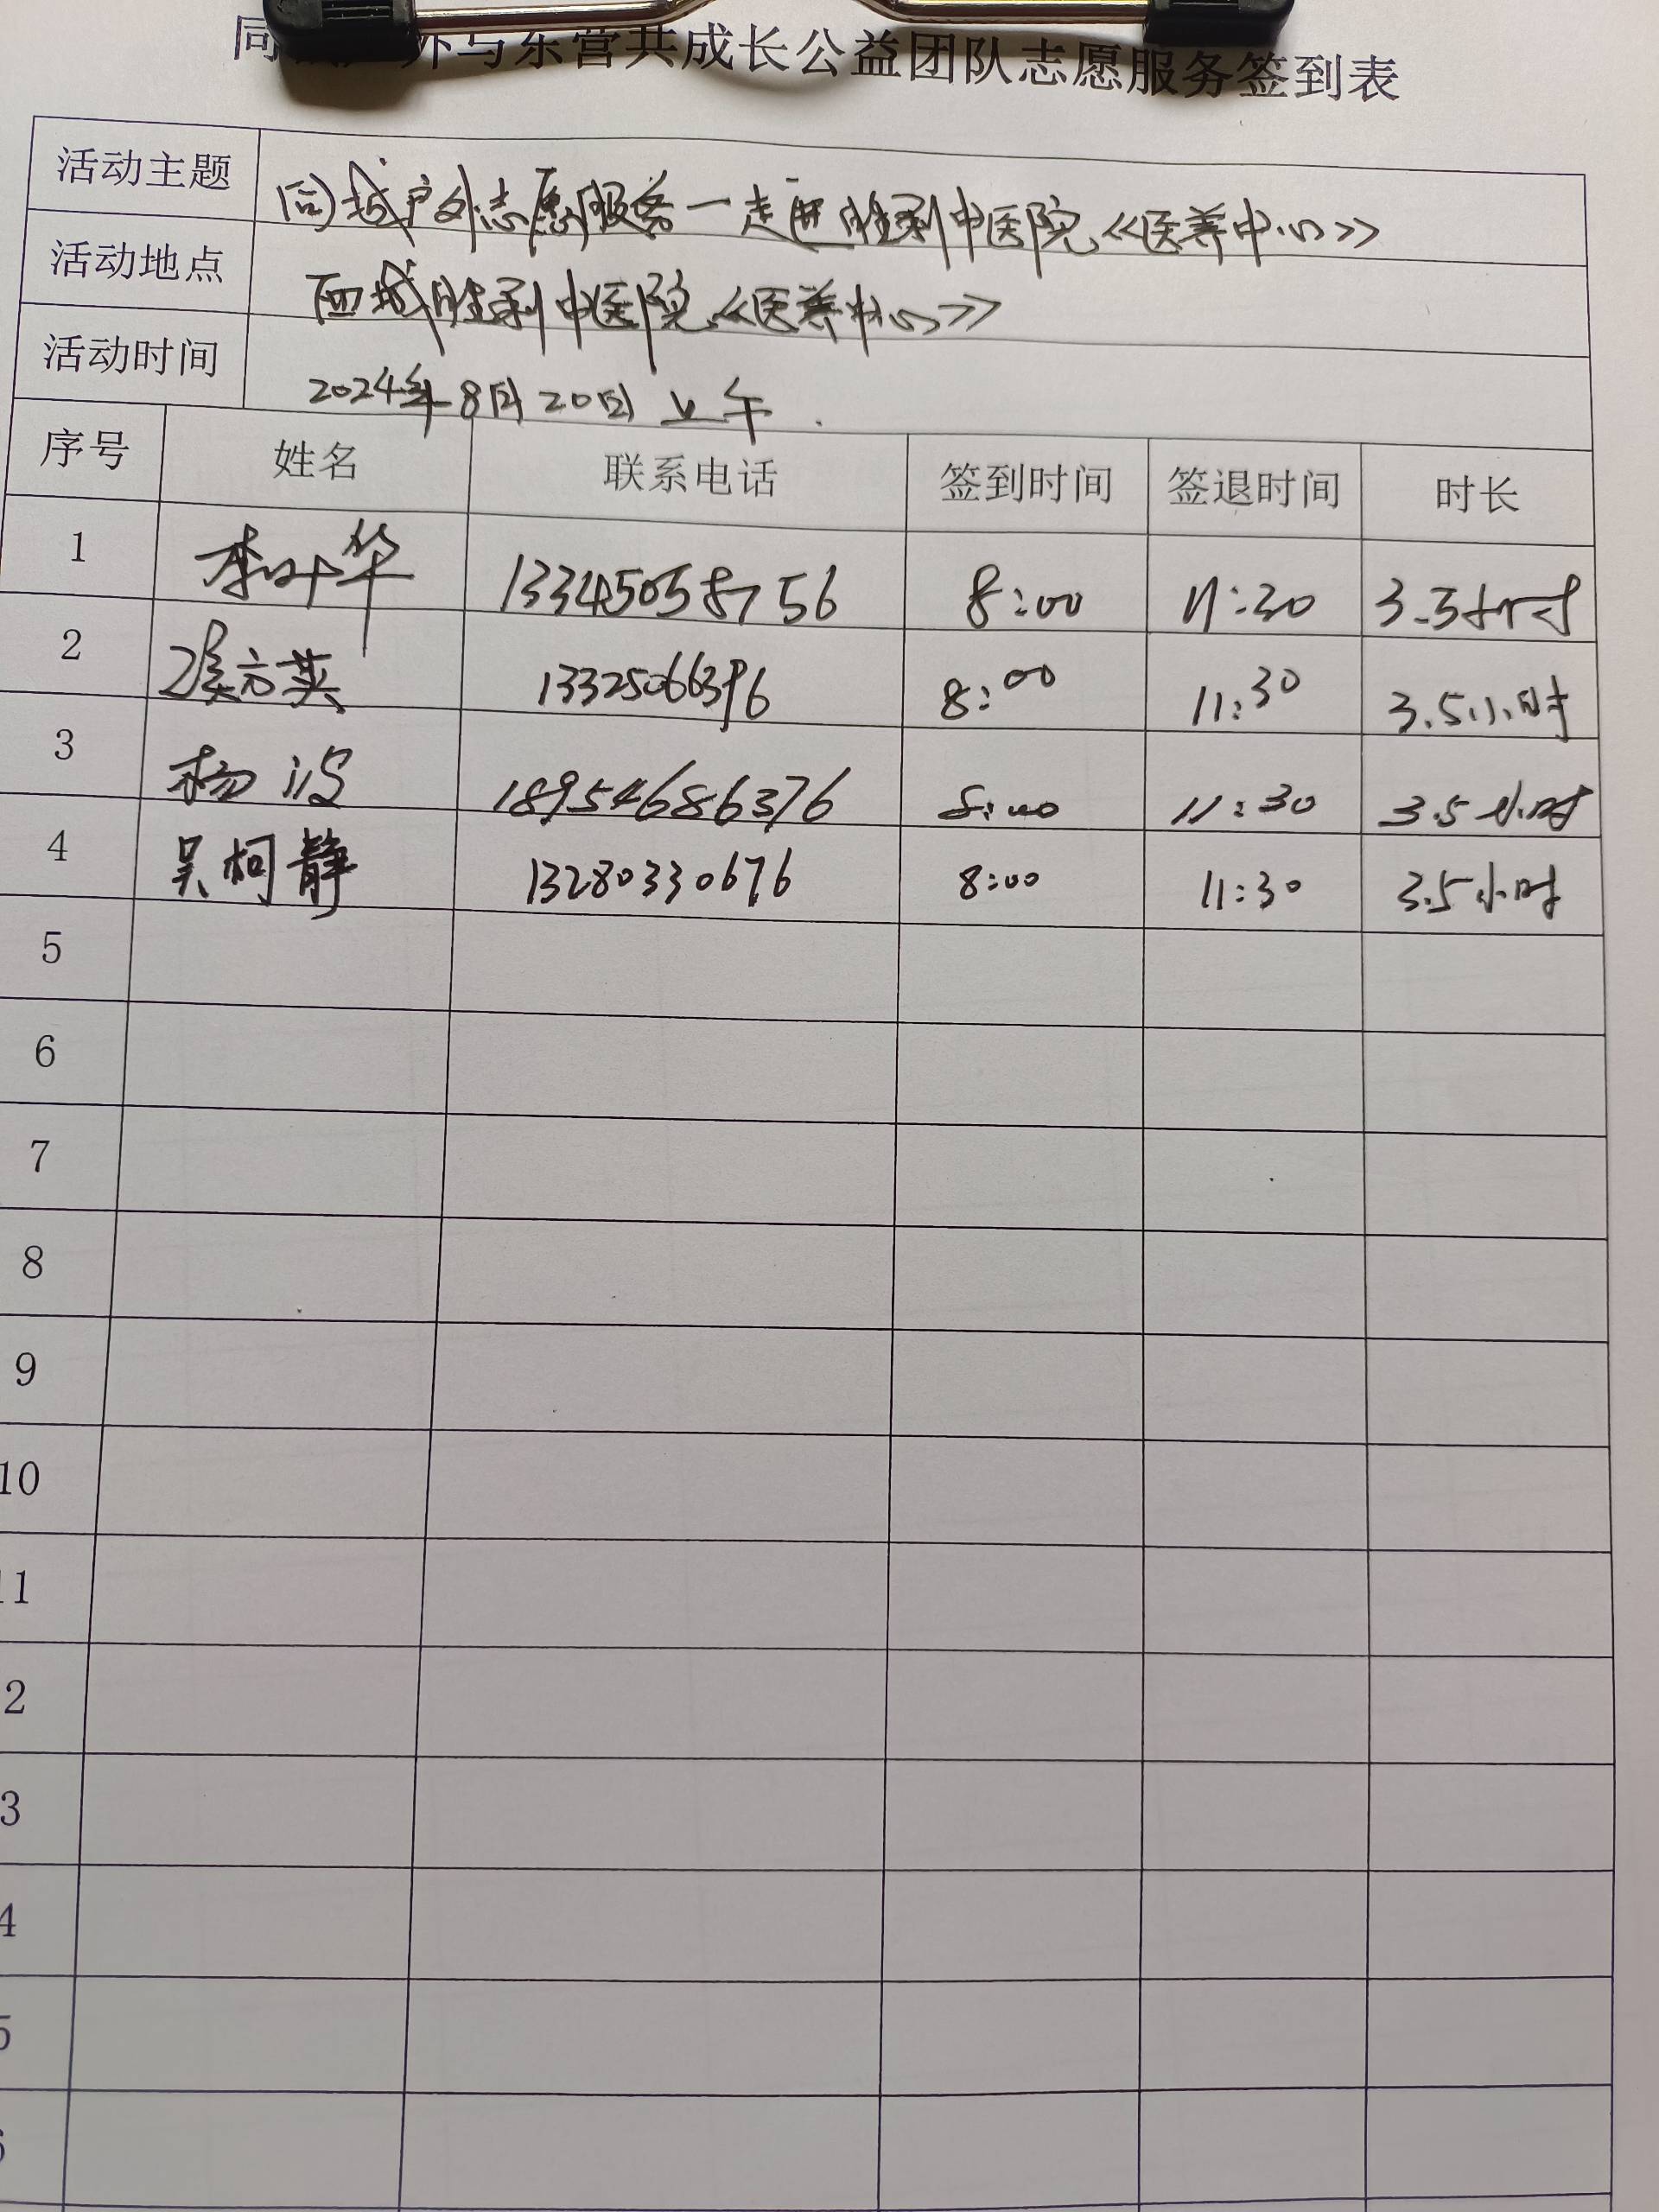 同城户外与东营共成长公益团队志愿服务签到表
活动主题 同城户外志愿服务一走进胜利中医院《医养中心》
活动地点 西城胜利中医院《医养中心》
活动时间 2024年8月20日上午.
序号 姓名 联系电话 签到时间 签退时间 时长
1 李叶华 8:00 11:30 3.5小时
2 13325066396 8:00 11:30 3.5小时
3 杨波 18954686376 8:00 11:30 3.5小时
4 吴柯静 13280330676 8:00 11:30 3.5小时
5
6
7
8
9
10
11
2
3
4
5